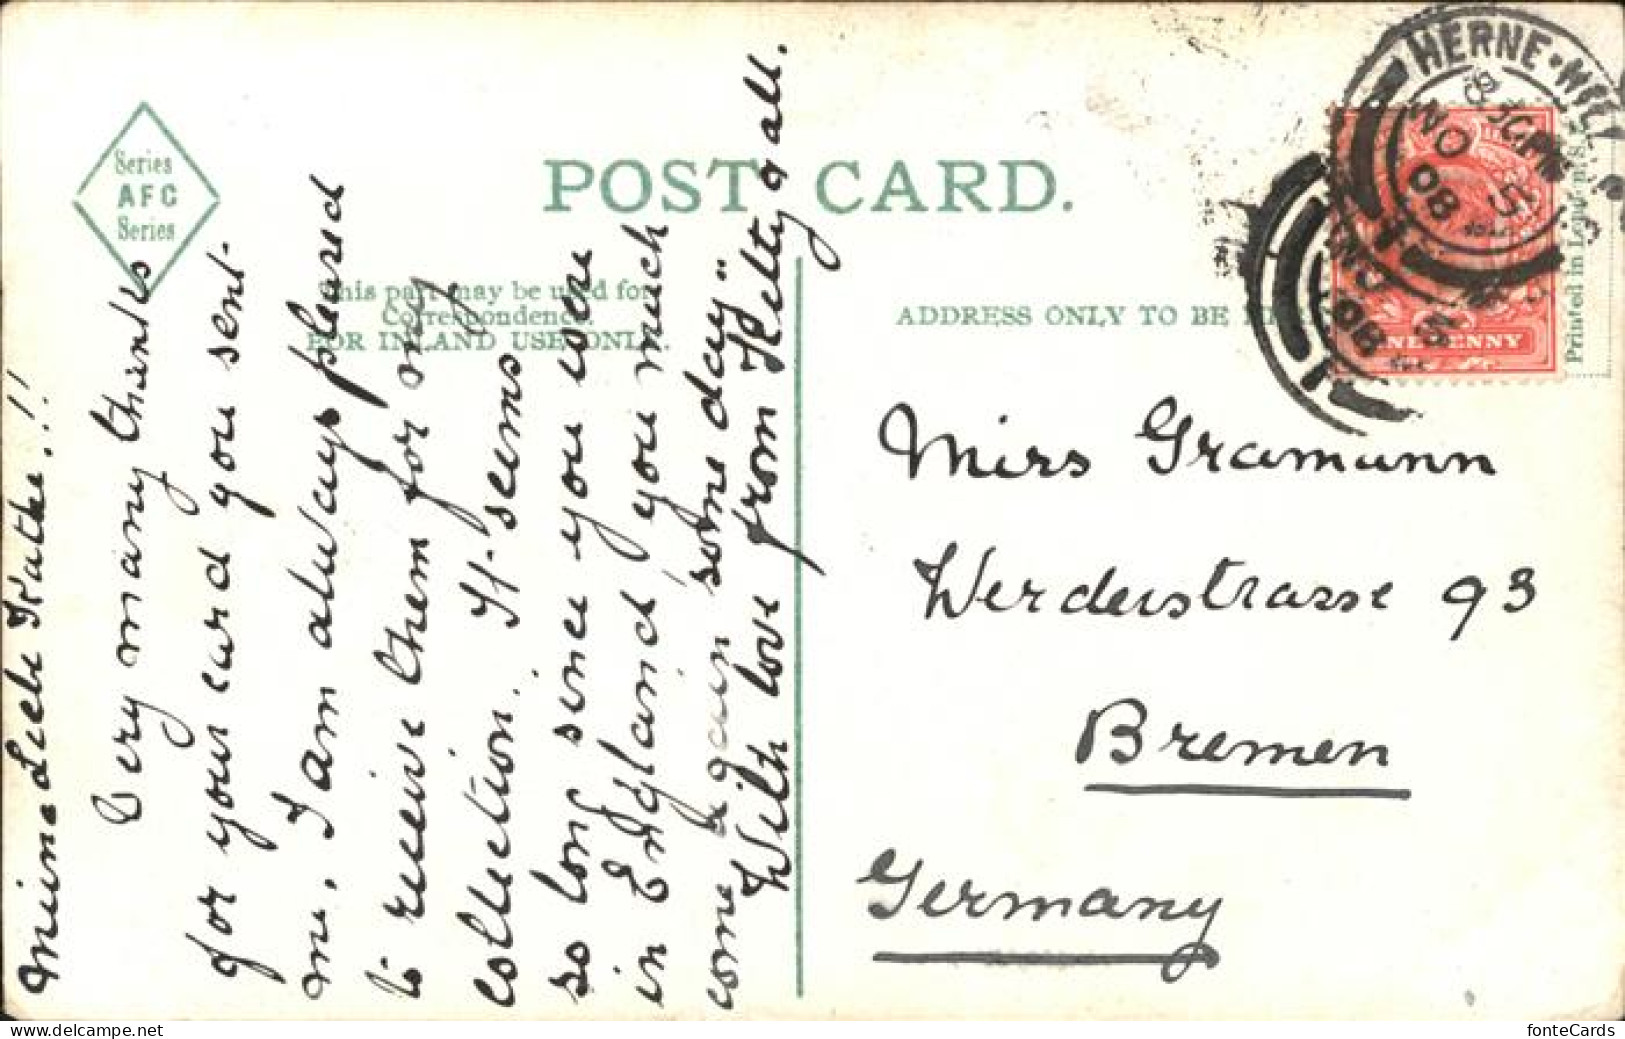 Series
AFC
Series
POST CARD.
This part may be used for
Correspondence.
FOR INLAND USE ONLY.
ADDRESS ONLY TO BE
Printed in London, S.
HERNE·HILL
NO 5
08
ONE PENNY
Meine Liebe Käthe!!!
Very many thanks
for your card you sent
me. I am always pleased
to receive them for my
collection. It seems
so long since you were
in England, you much
come again some day"
With love from Hetty & all.
Miss Gramann
Werderstrasse 93
Bremen
Germany
fonteCards
delcampe.net